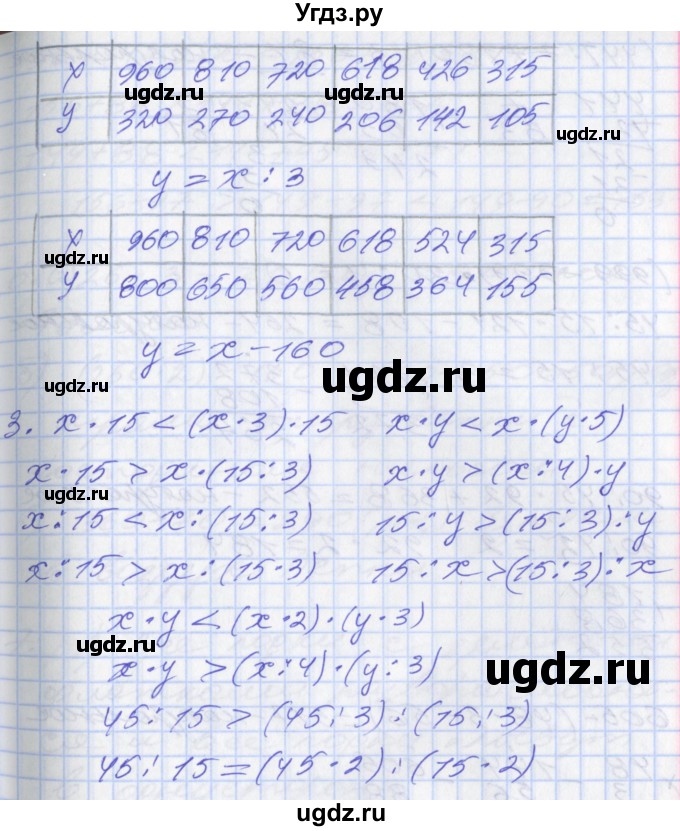 Угдз.ру
x 960 810 720 618 426 315
ugdz.ru ugdz.ru
y 320 270 240 206 142 105
ugdz.ru
y = x : 3
x 960 810 720 618 524 315
ugdz.ru
y 800 650 560 458 364 155
y = x - 160
ugdz.ru ugdz.ru
3. x · 15 < (x · 3) · 15 x · y < x · (y · 5)
x · 15 > x · (15 : 3) x · y > (x : 4) · y
ugdz.ru
x : 15 < x : (15 : 3) 15 : y > (15 : 3) : y
ugdz.ru
x : 15 > x : (15 · 3) 15 : x > (15 : 3) : x
x · y < (x · 2) · (y · 3)
ugdz.ru
x · y > (x : 4) · (y : 3)
ugdz.ru
45 : 15 > (45 : 3) : (15 : 3)
45 : 15 = (45 · 2) : (15 · 2)
ugdz.ru